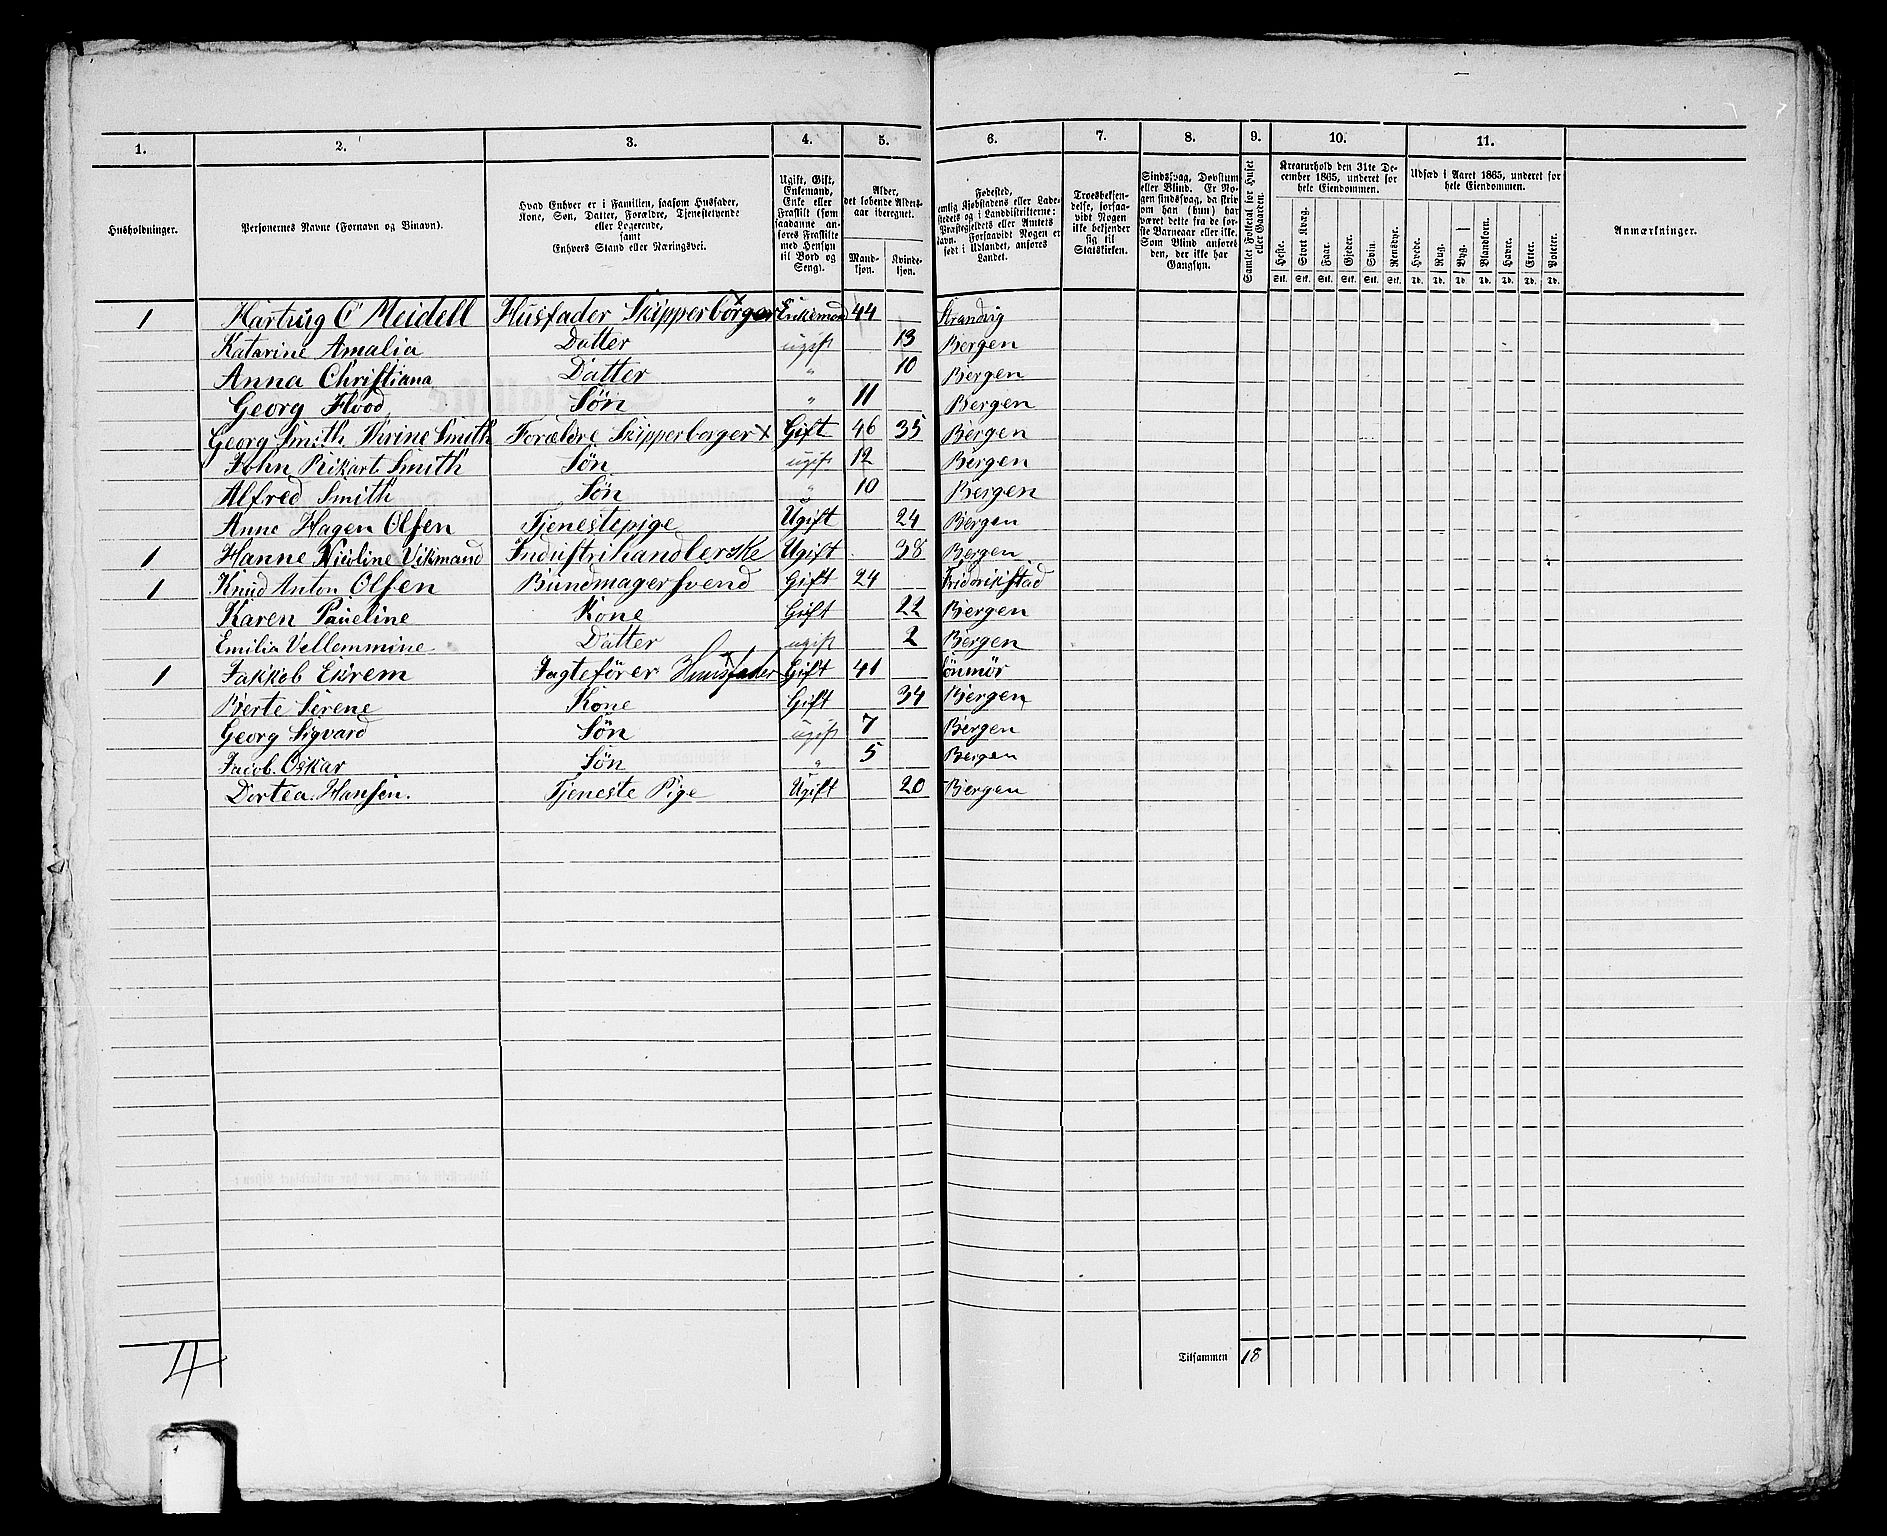 1. 2. 3. 4. 5. 6. 7. 8. 9. 10. 11.
Husholdninger.
Personernes Navne (Fornavn og Binavn).
Hvad Enhver er i Familien, saasom Husfader,
Kone, Søn, Datter, Forældre, Tjenestetyende
eller Logerende,
samt
Enhvers Stand eller Næringsvei.
Ugift, Gift,
Enkemand,
Enke eller
Fraskilt (som
saadanne an-
føres Fraskilte
med Hensyn
til Bord og
Seng).
Alder,
det løbende Alders-
aar iberegnet.
Mand-
kjøn.
Kvinde-
kjøn.
Fødested,
Kjøbstadens eller Lade-
stedets og i Landdistrikterne:
Præstegjeldets eller Amtets
Navn. Forsaavidt Nogen er
født i Udlandet, anføres
Landet.
Troesbekjen-
delse, forsaa-
vidt Nogen
ikke bekjender
sig til
Statskirken.
Sindssvag, Døvstum
eller Blind. Er No-
gen sindssvag, da skriv
om han (hun) har
været dette fra de før-
ste Barneaar eller ikke.
Som Blind anføres
den, der ikke har
Gangsyn.
Samlet Folketal for Huset
eller Gaarden.
Kreaturhold den 31te De-
cember 1865, underet for
hele Eiendommen.
Heste. Stort Kvæg. Faar. Gjeder. Svin. Rensdyr.
Stk. Stk. Stk. Stk. Stk. Stk.
Udsæd i Aaret 1865, underet for
hele Eiendommen.
Hvede. Rug. Byg. Blandkorn. Havre. Erter. Poteter.
Td. Td. Td. Td. Td. Td. Td.
Anmærkninger.
1 Hartvig C Meidell Husfader Skipperborger Enkemand 44 Strandvig
Katarine Amalia Datter ugift 13 Bergen
Anna Christiana Datter " 10 Bergen
Georg Flood Søn " 11 Bergen
Georg Smith Thrine Smith Forældre Skipperborger x Gift 46 35 Bergen
John Rikart Smith Søn ugift 12 Bergen
Alfred Smith Søn " 10 Bergen
Anne Hagen Olsen Tjenestepige Ugift 24 Bergen
1 Hanne Nicoline Vikmand Industrihandlerske Ugift 38 Bergen
1 Knud Anton Olsen Bundmagersvend Gift 24 Fridrikstad
Karen Paueline Kone Gift 22 Bergen
Emilia Vellemmine Datter ugift 2 Bergen
1 Jakkob Ekrem Jagtefører Huusfader Gift 41 Sönmör
Berte Serene Kone Gift 34 Bergen
Georg Sigvard Søn ugift 7 Bergen
Jacob Oskar Søn " 5 Bergen
Dortea Hansen. Tjeneste Pige Ugift 20 Bergen
4
Tilsammen 18